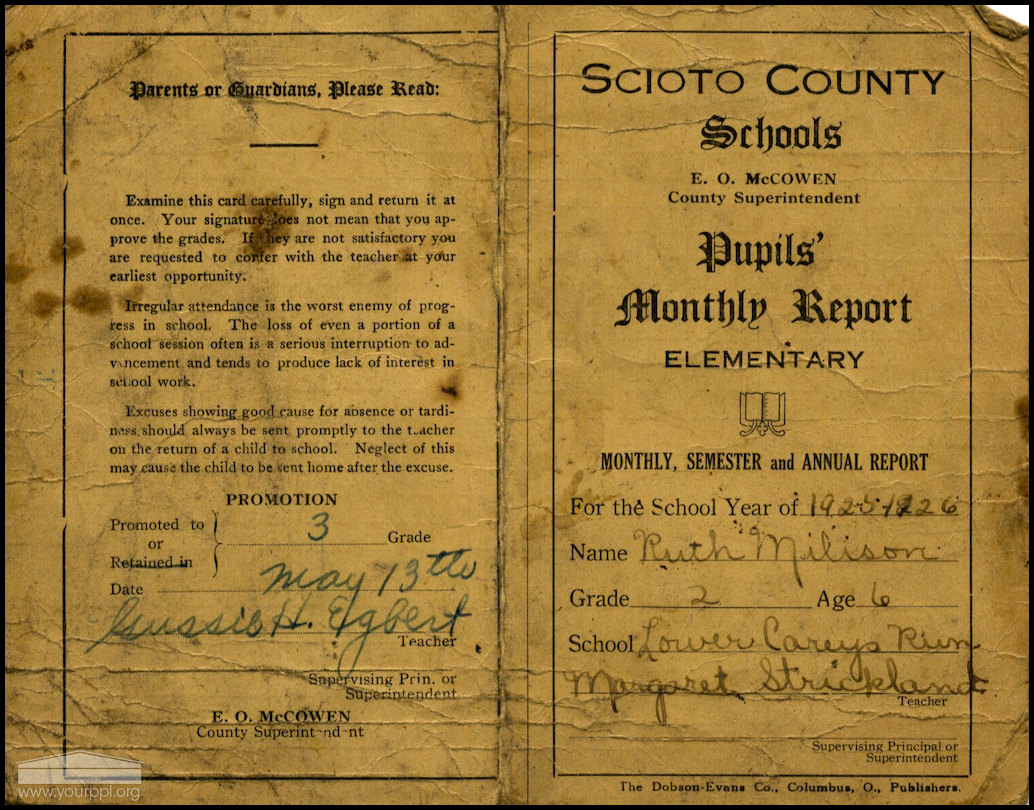 Parents or Guardians, Please Read:
Examine this card carefully, sign and return it at
once. Your signature does not mean that you ap-
prove the grades. If they are not satisfactory you
are requested to confer with the teacher at your
earliest opportunity.
Irregular attendance is the worst enemy of prog-
ress in school. The loss of even a portion of a
school session often is a serious interruption to ad-
vancement and tends to produce lack of interest in
school work.
Excuses showing good cause for absence or tardi-
ness should always be sent promptly to the teacher
on the return of a child to school. Neglect of this
may cause the child to be sent home after the excuse.
PROMOTION
Promoted to
or
Retained in
3 Grade
Date May 13th
Gussie H. Egbert
Teacher
Supervising Prin. or
Superintendent
E. O. McCOWEN
County Superintendent
www.yourppl.org
SCIOTO COUNTY
Schools
E. O. McCOWEN
County Superintendent
Pupils'
Monthly Report
ELEMENTARY
MONTHLY, SEMESTER and ANNUAL REPORT
For the School Year of 1925-1926
Name Ruth Milison
Grade 2 Age 6
School Lower Careys Run
Margaret Strickland
Teacher
Supervising Principal or
Superintendent
The Dobson-Evans Co., Columbus, O., Publishers.